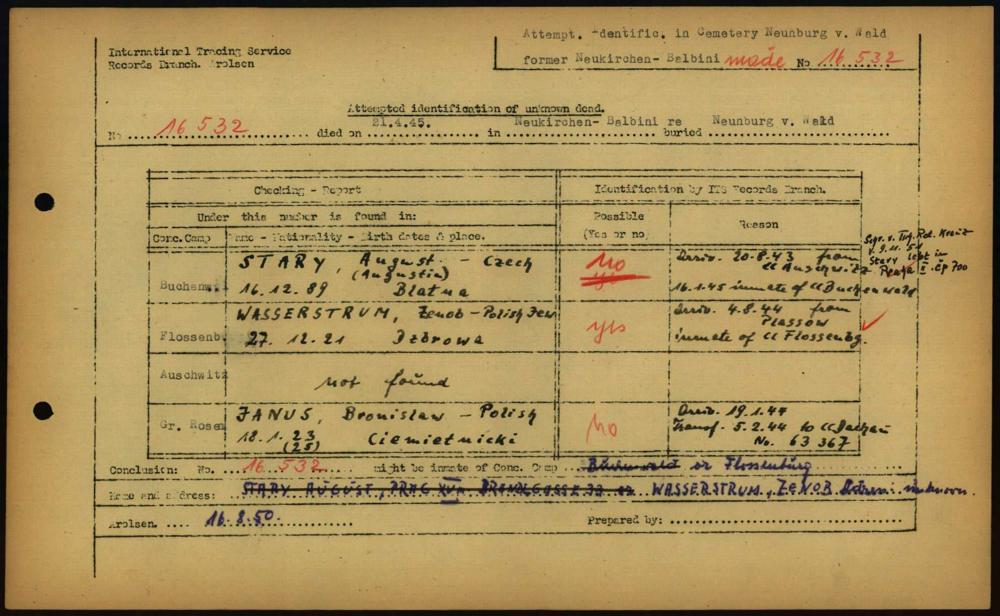 International Tracing Service
Records Branch. Arolsen
Attempt. identific. in Cemetery Neunburg v. Wald
former Neukirchen- Balbini made No 16 532
Attempted identification of unknown dead.
No 16 532 died on 21.4.45. in Neukirchen- Balbini re buried Neunburg v. Wald
Checking - Report
Identification by ITS Records Branch.
Under this number is found in:
Possible
(Yes or no)
Reason
Conc.Camp
Name - Nationality - Birth dates & place.
Buchenwald
STARY, August - Czech
(Augustin)
16.12.89 Blatna
no
Arriv. 20.8.43 from
CC Auschwitz
16.1.45 inmate of CC Buchenwald
v. 9.11.51
Stary lebt in
Flossenb
WASSERSTRUM, Zenob - Polish Jew
27. 12. 21 Dzbrowa
yes
Arriv. 4.8.44 from
Plassow
inmate of CC Flossenbg.
Auschwitz
not found
Gr. Rosen
JANUS, Bronislaw - Polish
18.1.23
(25)
Ciemietnicki
No
Arriv. 19.1.44
Transf. 5.2.44 to CC Dachau
No. 63 367
Conclusion: No. 16.532 might be inmate of Conc. Camp Buchenwald or Flossenbürg
Name and address: STARY AUGUST, PRAG XVII or WASSERSTRUM, ZENOB unknown.
Arolsen. 16.8.50. Prepared by: